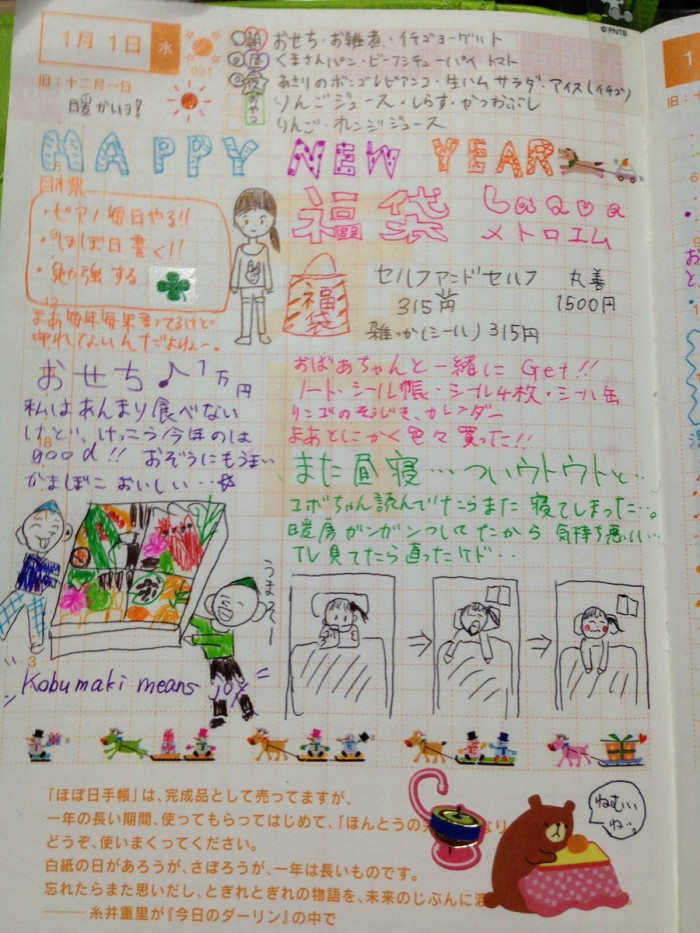 1月1日 水
001
旧：十二月一日
暖かいョ！
©PNTS
朝 おせち・お雑煮・イチゴヨーグルト
昼 くまさんパン・ビーフシチューパイ トマト
夜 あさりのボンゴレビアンコ・生ハムサラダ・アイス(イチゴ)
おやつ りんごジュース・しらす・かつおぶし
りんご・オレンジジュース
HAPPY NEW YEAR
目標
・ピアノ毎日やる!!
・ほぼ日書く!!
・勉強する
まあ毎年毎年言ってるけど
守れてないんだよねぇー。
福袋 LaQua
メトロエム
福袋
セルフアンドセルフ 丸善
315円 1500円
雑っか(シール) 315円
おばあちゃんと一緒に Get!!
ノート・シール帳・シール4枚・シール缶
リンゴのそうじき、カレンダー
まあとにかく色々買った!!
おせち♪1万円
私はあんまり食べない
けど、けっこう今年のは
good!! おぞうにもうまい
かまぼこおいしい…☆
また昼寝…ついウトウトと…
コボちゃん読んでたらまた寝てしまった…。
暖房ガンガンついてたから 気持ち悪い…
TV見てたら直ったけど…
うまそー
Kobumaki means joy
12
18
3
「ほぼ日手帳」は、完成品として売ってますが、
一年の長い期間、使ってもらってはじめて、「ほんとうの
どうぞ、使いまくってください。
白紙の日があろうが、さぼろうが、一年は長いものです。
忘れたらまた思いだし、とぎれとぎれの物語を、未来のじぶんに
―――糸井重里が『今日のダーリン』の中で
ねむぃ
ね。
旧：十